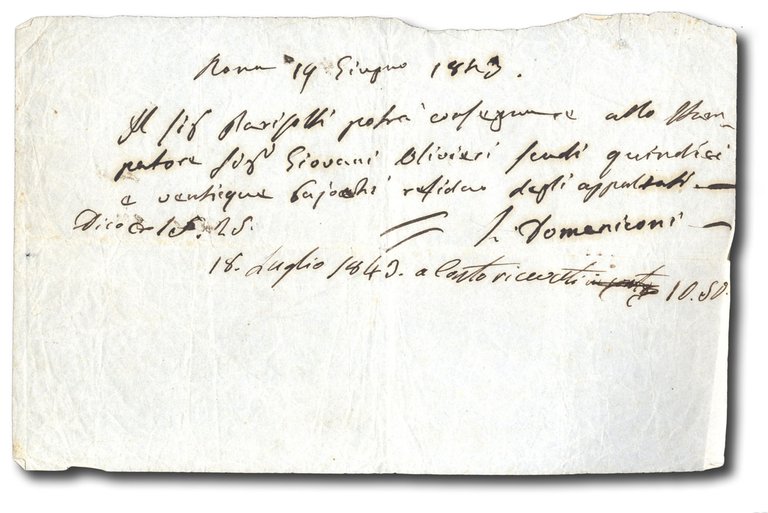 Roma 19 Giugno 1843.
Il Sigr Parisotti potrà consegnare allo Stam-
patore Sigr Giovani Olivieri scudi quindici
e venticque bajochi residuo degli appaltati —
Dico 15. 25. L. Domeniconi —
18. Luglio 1843. a Conto ricevetti 10.50.